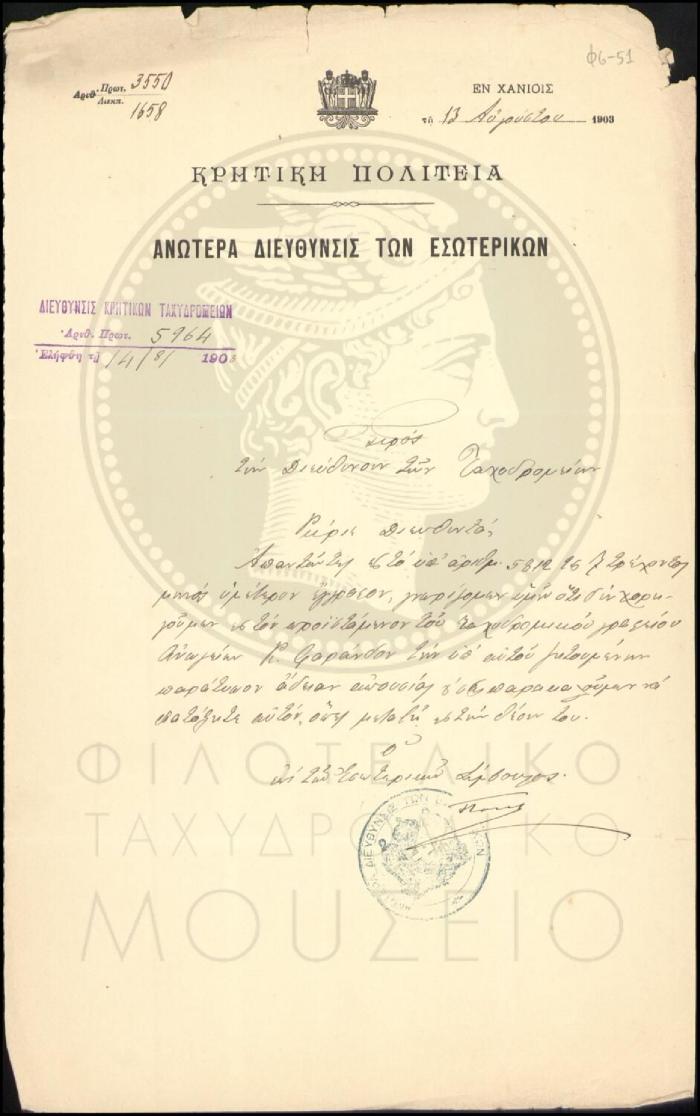 Φ6-51
Αριθ. Πρωτ. 3550
Διεκπ. 1658
ΕΝ ΧΑΝΙΟΙΣ
τῇ 13 Αὐγούστου 1903
ΚΡΗΤΙΚΗ ΠΟΛΙΤΕΙΑ
ΑΝΩΤΕΡΑ ΔΙΕΥΘΥΝΣΙΣ ΤΩΝ ΕΣΩΤΕΡΙΚΩΝ
ΔΙΕΥΘΥΝΣΙΣ ΚΡΗΤΙΚΩΝ ΤΑΧΥΔΡΟΜΕΙΩΝ
Ἀριθ. Πρωτ. 5964
Ἐλήφθη τῇ 14/8/ 1903
Πρός
τὴν Διεύθυνσιν τῶν Ταχυδρομείων
Κύριε Διευθυντά,
Ἀπαντῶντες εἰς τὸ ὑπ' ἀριθμ. 5812 τρέχοντος
μηνὸς ὑμέτερον ἔγγραφον, γνωρίζομεν ὑμῖν ὅτι συγχωρ
εἰς τὸν προϊστάμενον τοῦ ταχυδρομικοῦ γραφείου
Ἀνωγείων Κ. τὴν ὑπ' αὐτοῦ ζητουμένην
ἄδειαν ἀπουσίας παρακαλοῦμεν νὰ
αὐτόν, ὅπως μεταβῇ εἰς τὴν θέσιν του.
Ὁ
ἐπὶ τῶν Ἐσωτερικῶν Σύμβουλος.
ΔΙΕΥΘΥΝΣΙΣ ΤΩΝ
ΦΙΛΟΤΕΛΙΚΟ
ΤΑΧΥΔΡΟΜΙΚΟ
ΜΟΥΣΕΙΟ